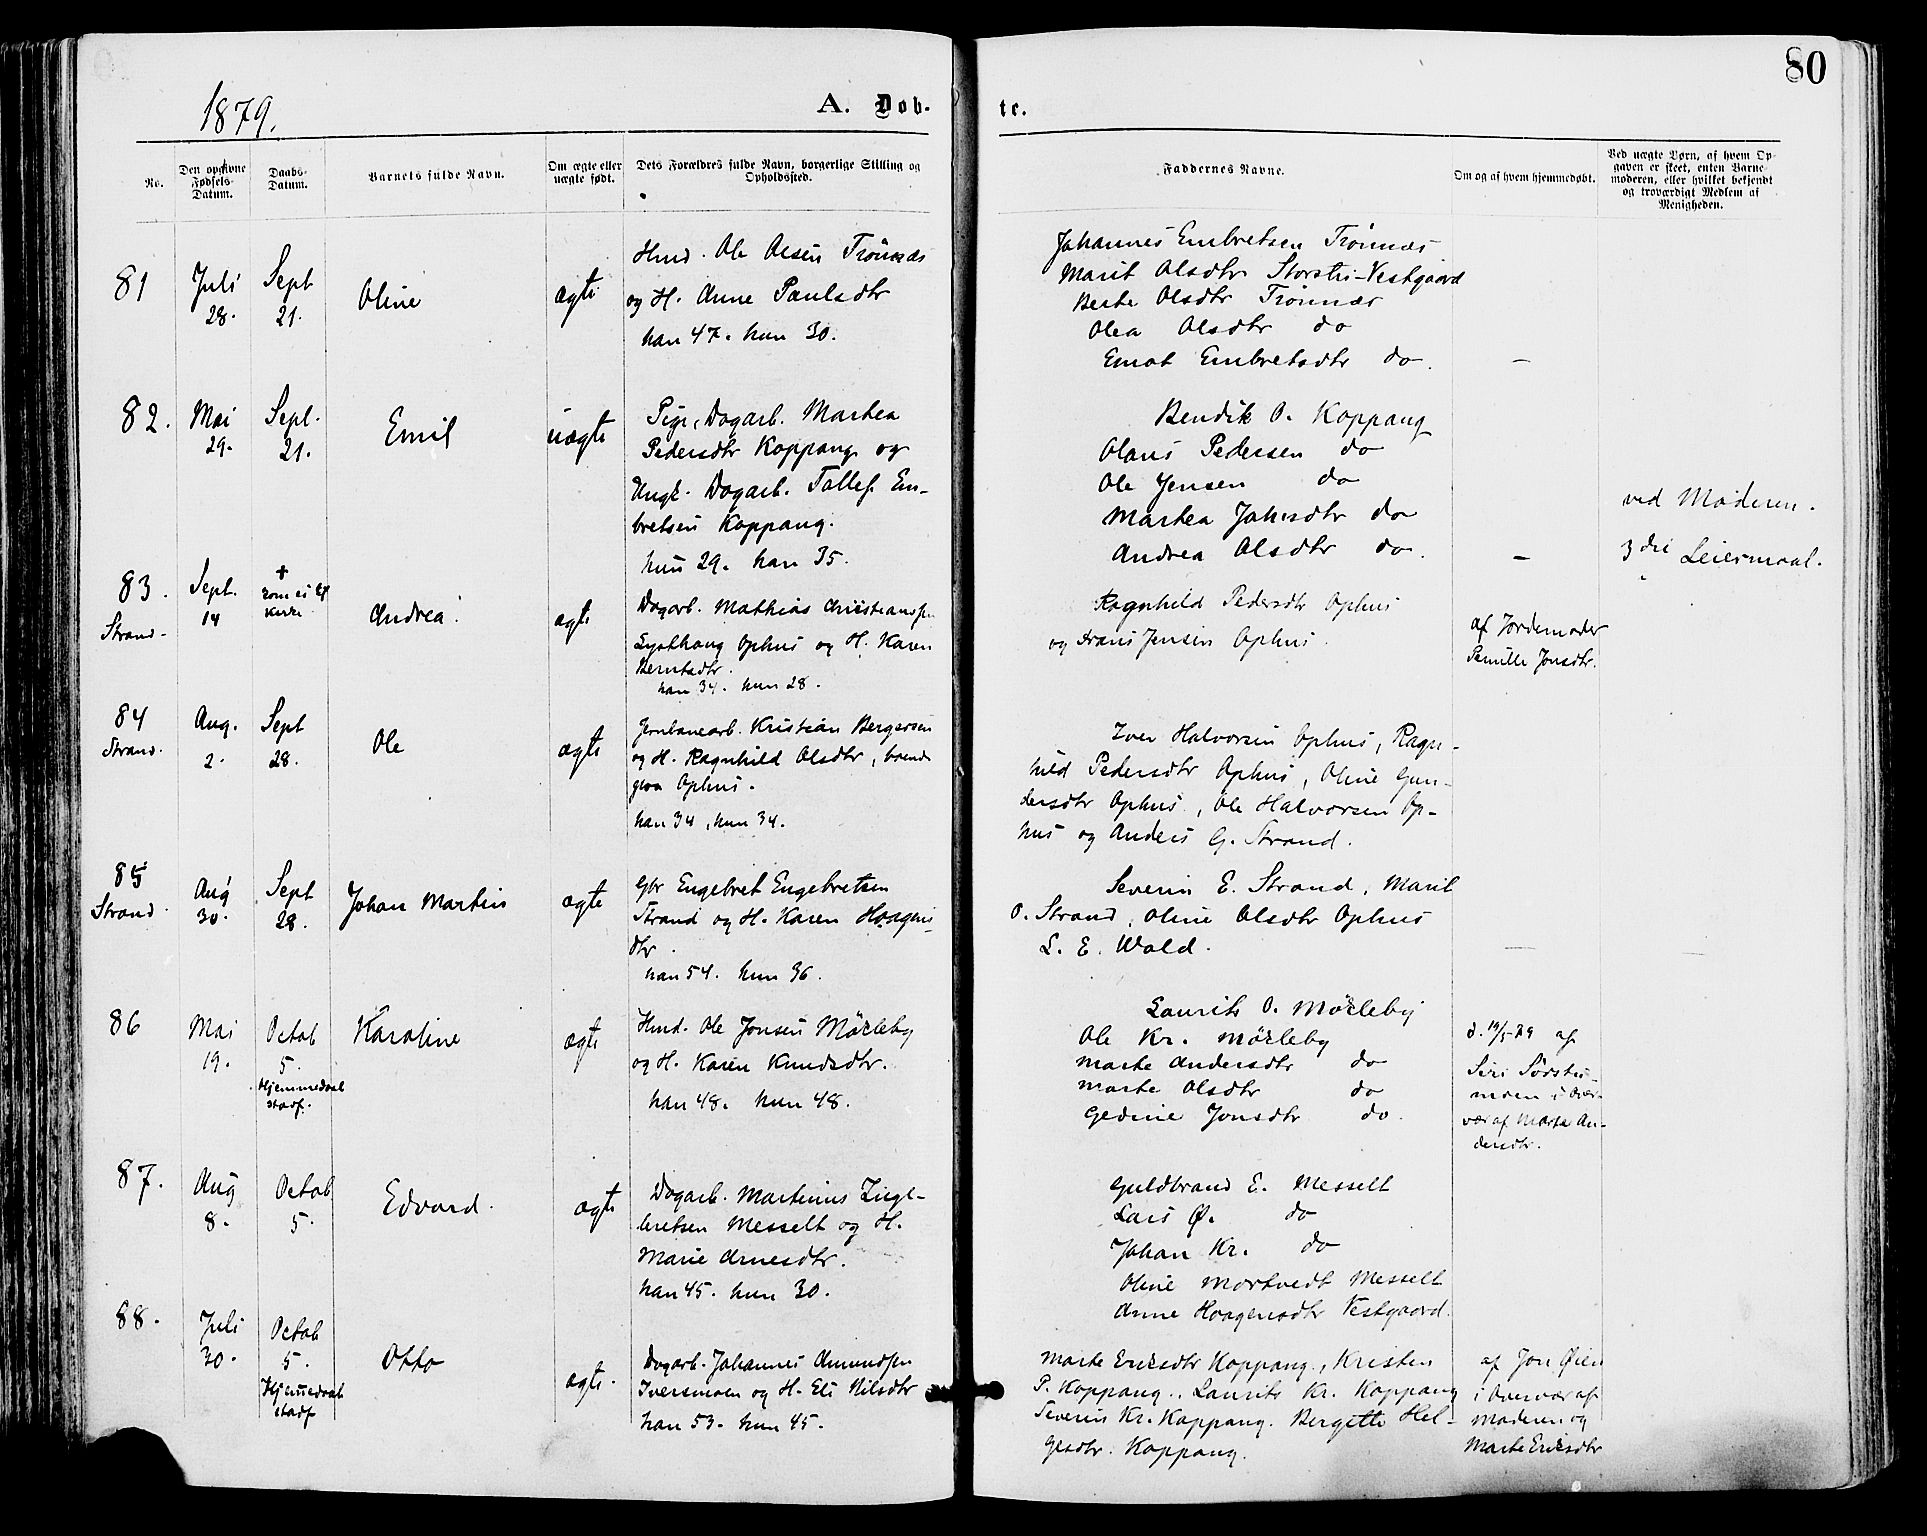 80
1879.
A. Døb-
te.
No.
Den opgivne Fødsels-Datum.
Daabs-Datum.
Barnets fulde Navn.
Om ægte eller uægte født.
Dets Forældres fulde Navn, borgerlige Stilling og Opholdssted.
Faddernes Navne.
Om og af hvem hjemmedøbt.
Ved uægte Børn, af hvem Op-
gaven er skeet, enten Barne-
moderen, eller hvilket bekjendt
og troværdigt Medlem af
Menigheden.
81
Juli
28.
Sept
21.
Oline
ægte
Hmd. Ole Olsen Trönnæs
og H. Anne Paulsdtr
han 47. hun 30.
Johannes Embretsen Trönnæs
Marit Olsdtr Storstu-Vestgaard
Berte Olsdtr Trönnæs
Olea Olsdtr do
Embret Embretsdtr do.
–
82.
Mai
29.
Sept.
21.
Emil
uægte
Pige, Dagarb. Marthea
Pedersdtr Koppang og
Ungk. Dagarb. Tollef Em-
bretsen Koppang.
hun 29. han 35.
Bendik O. Koppang
Olaus Pedersen do
Ole Jensen do
Marthea Jahnsdtr do
Andrea Olsdtr do.
–
ved Moderen.
3die Leiermaal.
83.
Strand.
Sept.
14
+
kom ei til
Kirke.
Andrea
ægte
Dagarb. Mathias Christiansen
Lysthaug Ophus og H. Karen
Berntsdtr.
han 34. hun 28.
Ragnhild Pedersdtr Ophus
og Frans Jensen Ophus.
af Jordemoder
Pernille Jonsdtr.
84
Strand.
Aug.
2.
Sept
28.
Ole
ægte
Jernbanearb. Kristian Bergersen
og H. Ragnhild Olsdtr, boende
paa Ophus.
han 34, hun 34.
Iver Halvorsen Ophus, Ragn-
hild Pedersdtr Ophus, Oline Gun-
dersdtr Ophus, Ole Halvorsen Op-
hus og Anders G. Strand.
85
Strand.
Aug
30.
Sept
28.
Johan Martin
ægte
Gbr Engebret Engebretsen
Strand og H. Karen Haagens-
dtr.
han 54. hun 36.
Severin E. Strand, Marit
O. Strand, Oline Olsdtr Ophus
L. E. Wold.
–
–
86
Mai
19.
Octob
5.
Hjemmedaab
stadf.
Karoline
ægte
Hmd. Ole Jonsen Mörkeby
og H. Karen Knudsdtr.
han 48. hun 48.
Laurits O. Mörkeby
Ole Kr. Mörkeby
Marte Andersdtr do
Marte Olsdtr do
Gedine Jonsdtr do.
d. 19/5 79 af
Siri Sörstu-
moen i Over-
vær af Marte An-
dersdtr.
87.
Aug
8.
Octob
5.
Edvard.
ægte
Dagarb. Martinus Enge-
bretsen Messelt og H.
Marie Arnesdtr.
han 45. hun 30.
Guldbrand E. Messelt
Lars Ø. do
Johan Kr. do
Oline Mortvedt Messelt
Anne Haagensdtr Vestgaard.
88.
Juli
30.
Octob
5.
Hjemmedaab
stadf
Otto
ægte.
Dagarb. Johannes Amundsen
Iversmoen og H. Eli Nilsdtr
han 53. hun 45.
Marte Eriksdtr Koppang., Kristen
P. Koppang., Laurits Kr. Koppang
Severin Kr. Koppang. Bergitte Hel-
gesdtr. Koppang.
af Jon Øien
i Overvær af
Moderen og
Marte Eriksdtr